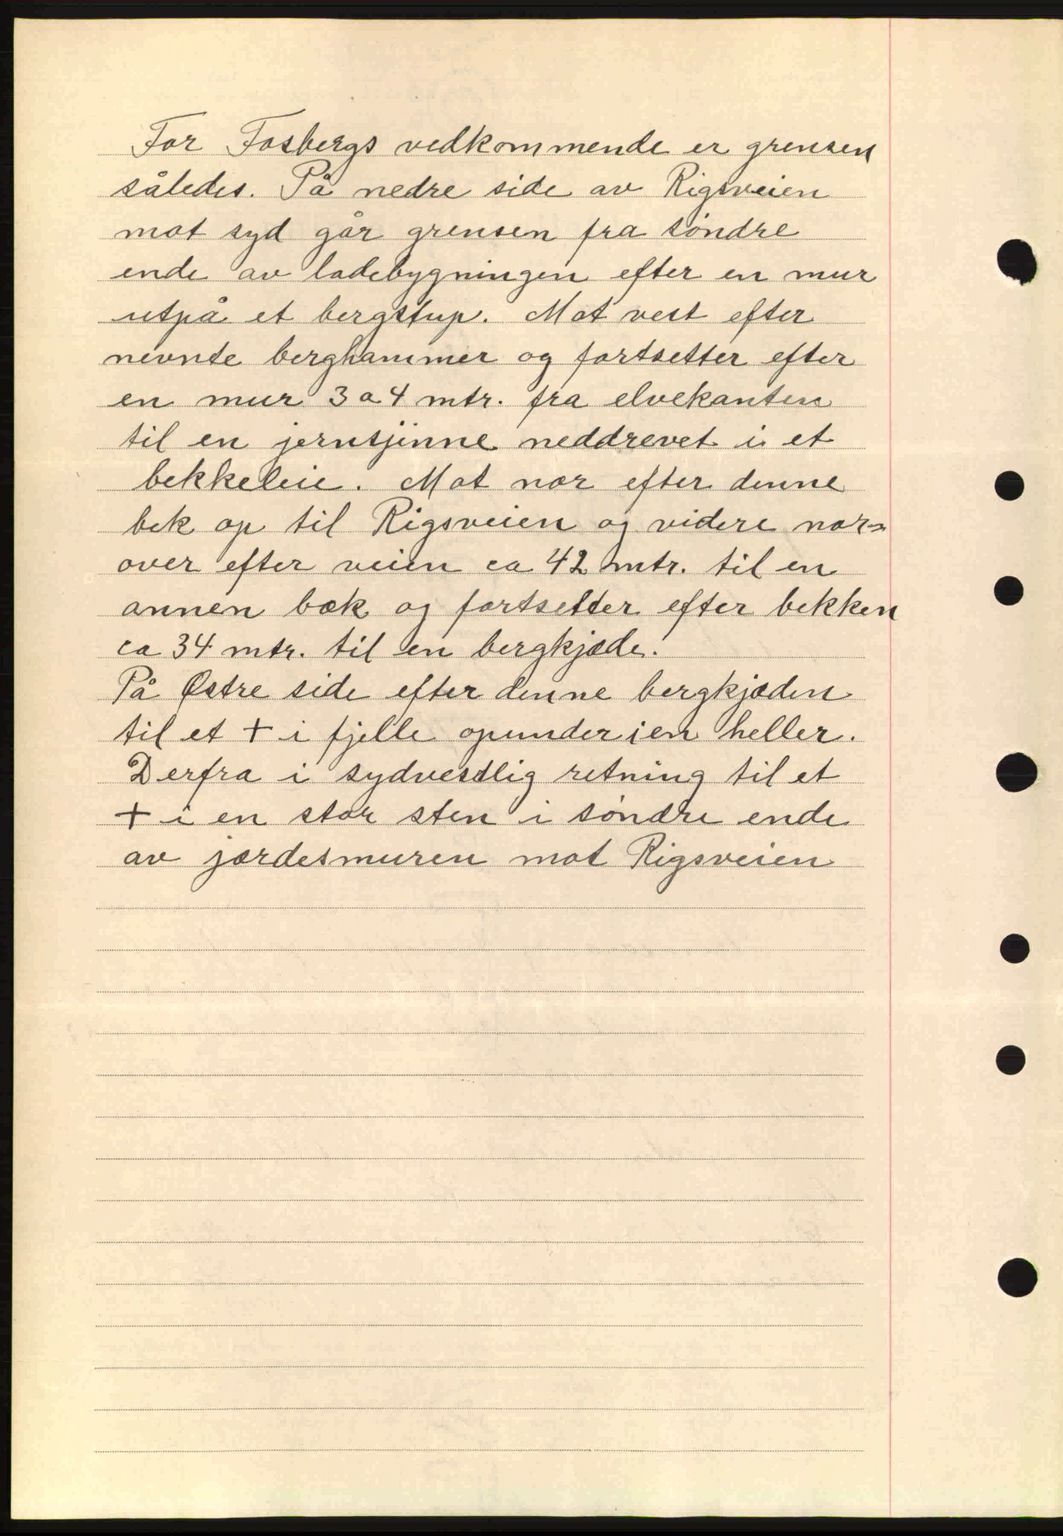 For Fosbergs vedkommende er grensen
således. På nedre side av Rigsveien
mot syd går grensen fra søndre
ende av ladebygningen efter en mur
utpå et bergstup. Mot vest efter
nevnte berghammer og fortsetter efter
en mur 3 a 4 mtr. fra elvekanten
til en jernsjinne neddrevet i et
bekkeleie. Mot nor efter denne
bek op til Rigsveien og videre nor-
over efter veien ca 42 mtr. til en
annen bæk og fortsetter efter bekken
ca 34 mtr. til en bergkjæde.
På Østre side efter denne bergkjæden
til et + i fjelle opunder i en heller.
Derfra i sydvestlig retning til et
+ i en stor sten i søndre ende
av jordesmuren mot Rigsveien